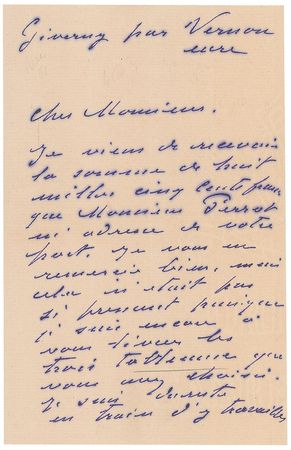 Giverny par Vernon
eure
Cher Monsieur.
Je viens de recevoir
la somme de huit
mille cinq cent francs
que Monsieur Perrot
m'adresse de votre
part. Je vous en
remercie bien, mais
cela n'était pas
si pressant puisque
je suis encore à
vous livrer les
trois tableaux que
vous avez choisis.
Je suis
en train d'y travailler